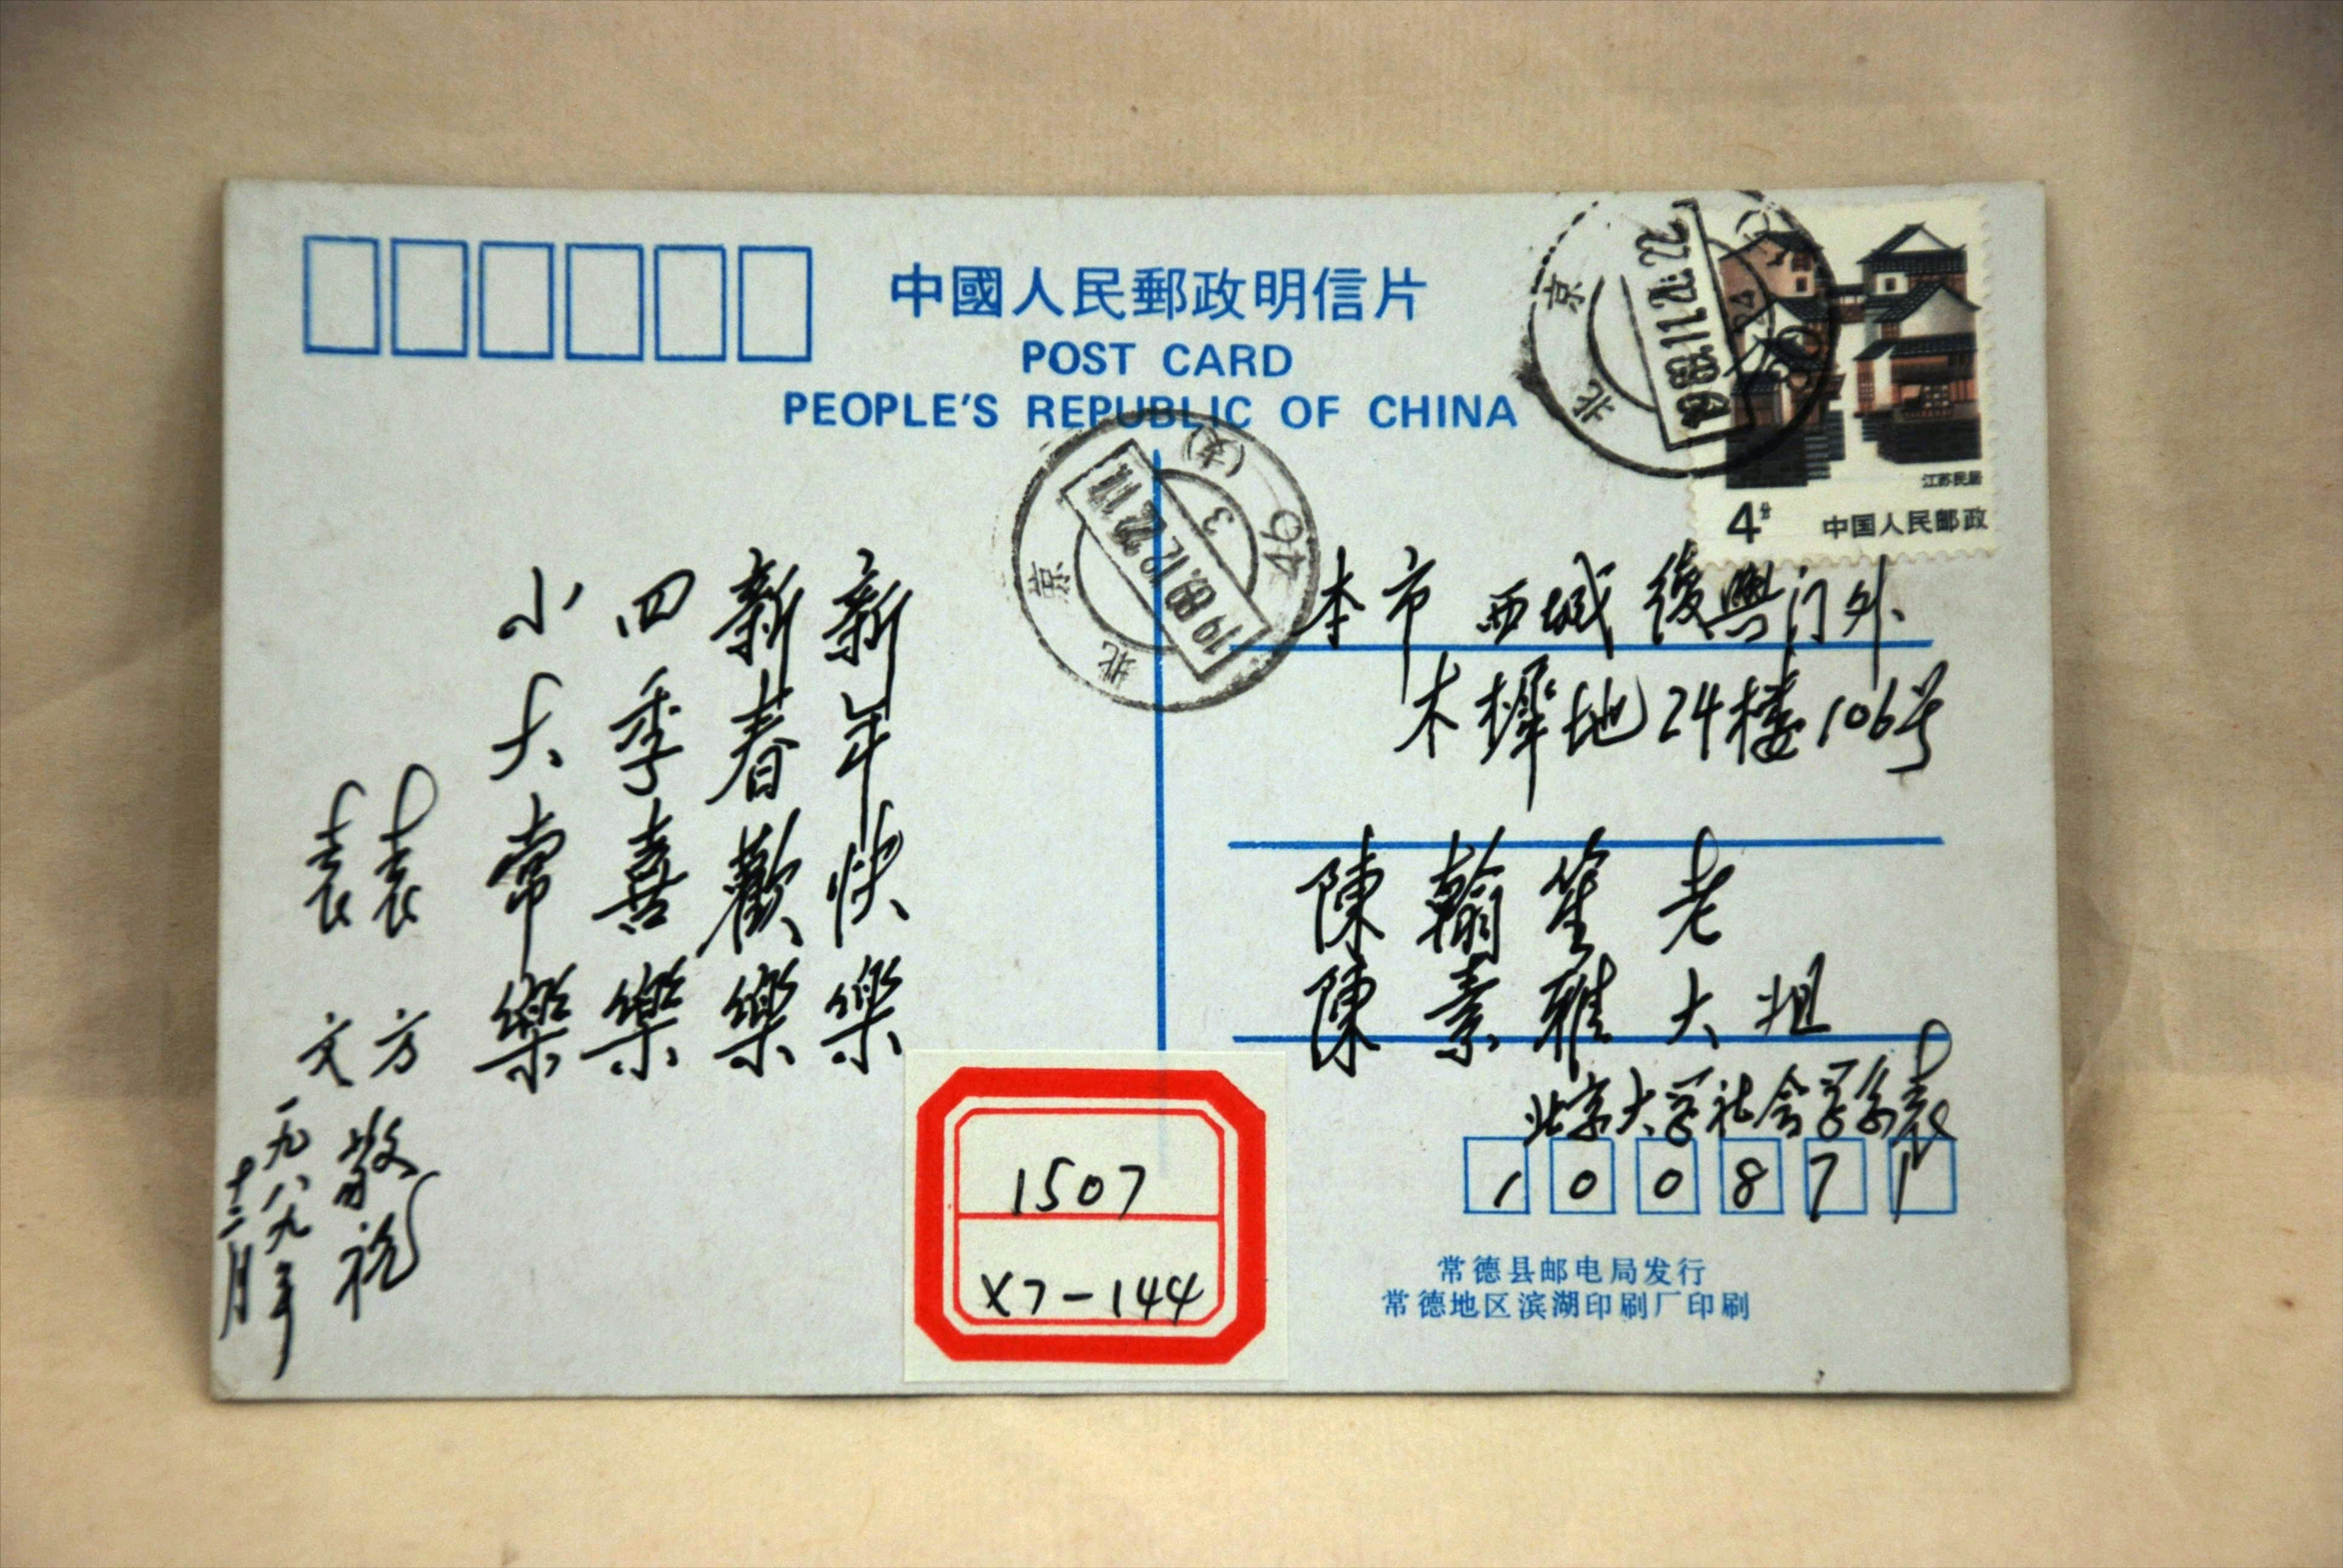 中國人民郵政明信片
POST CARD
PEOPLE'S REPUBLIC OF CHINA
江苏民居
4分 中国人民邮政
北京
北京
1989.12.22.11
46
3
(支)
本市西城復興门外
木樨地24楼106号
陳翰笙老
陳素雅大姐
北京大学社会学系袁
100871
常德县邮电局发行
常德地区滨湖印刷厂印刷
新年快樂
新春歡樂
四季喜樂
小大常樂
袁方
袁文
敬祝
一九八九年
十二月
1507
X7-144